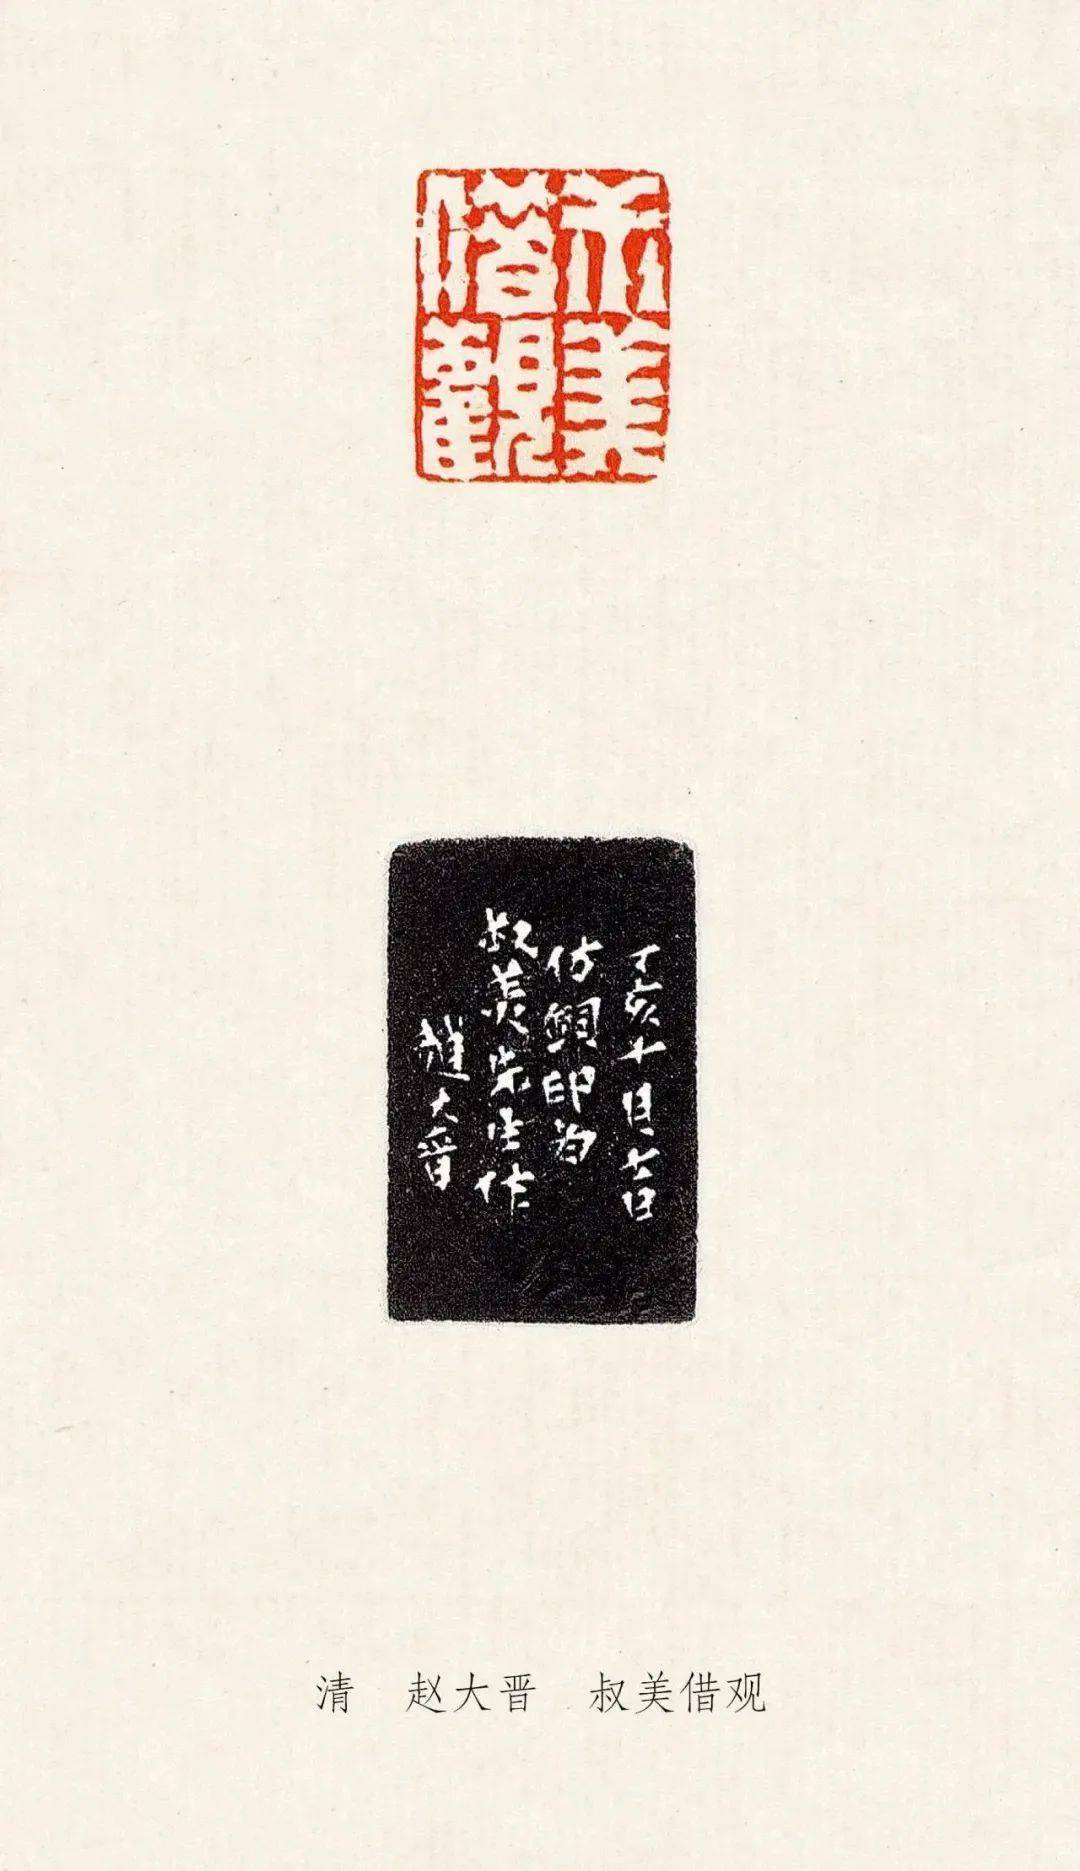 尗美
借觀
丁亥十月七日
仿銅印為
叔美先生作
趙大晉
清 赵大晋 叔美借观